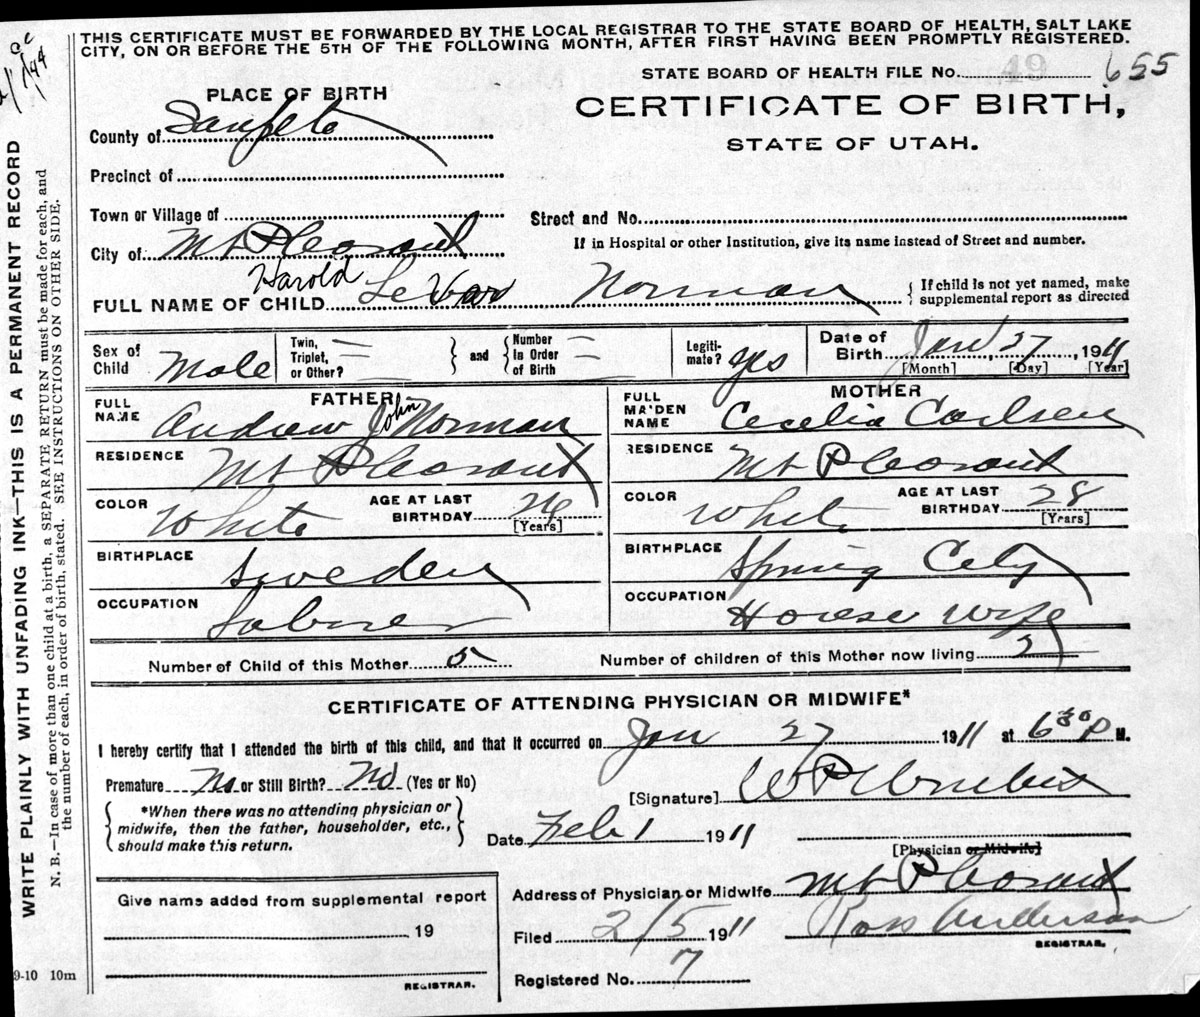 THIS CERTIFICATE MUST BE FORWARDED BY THE LOCAL REGISTRAR TO THE STATE BOARD OF HEALTH, SALT LAKE
CITY, ON OR BEFORE THE 5TH OF THE FOLLOWING MONTH, AFTER FIRST HAVING BEEN PROMPTLY REGISTERED.
STATE BOARD OF HEALTH FILE No. 49 655
PLACE OF BIRTH
CERTIFICATE OF BIRTH,
STATE OF UTAH.
County of Sanpete
Precinct of
Town or Village of
Street and No.
City of Mt Pleasant
If in Hospital or other Institution, give its name instead of Street and number.
Harold
FULL NAME OF CHILD LeVar Norman
{ If child is not yet named, make
supplemental report as directed
Sex of
Child Male
Twin,
Triplet,
or Other?
and
Number
In Order
of Birth
Legiti-
mate? yes
Date of
Birth Jan, 27, 1911
[Month] [Day] [Year]
FATHER
FULL
NAME Andrew John Norman
RESIDENCE Mt Pleasant
COLOR White
AGE AT LAST
BIRTHDAY 26
[Years]
BIRTHPLACE Sweden
OCCUPATION Laborer
MOTHER
FULL
MAIDEN
NAME Cecelia Carlsen
RESIDENCE Mt Pleasant
COLOR White
AGE AT LAST
BIRTHDAY 28
[Years]
BIRTHPLACE Spring City
OCCUPATION House wife
Number of Child of this Mother 5
Number of children of this Mother now living 2
CERTIFICATE OF ATTENDING PHYSICIAN OR MIDWIFE*
I hereby certify that I attended the birth of this child, and that it occurred on Jan 27 1911 at 6 30 P M.
Premature No or Still Birth? No (Yes or No)
[Signature] W P
*When there was no attending physician or
midwife, then the father, householder, etc.,
should make this return.
Date Feb 1 1911
[Physician or Midwife]
Address of Physician or Midwife Mt Pleasant
Give name added from supplemental report
19
REGISTRAR.
Filed 2/5 1911 Ross Anderson
REGISTRAR.
Registered No. 7
9-10 10m
WRITE PLAINLY WITH UNFADING INK—THIS IS A PERMANENT RECORD
N. B.—In case of more than one child at a birth, a SEPARATE RETURN must be made for each, and
the number of each, in order of birth, stated. SEE INSTRUCTIONS ON OTHER SIDE.